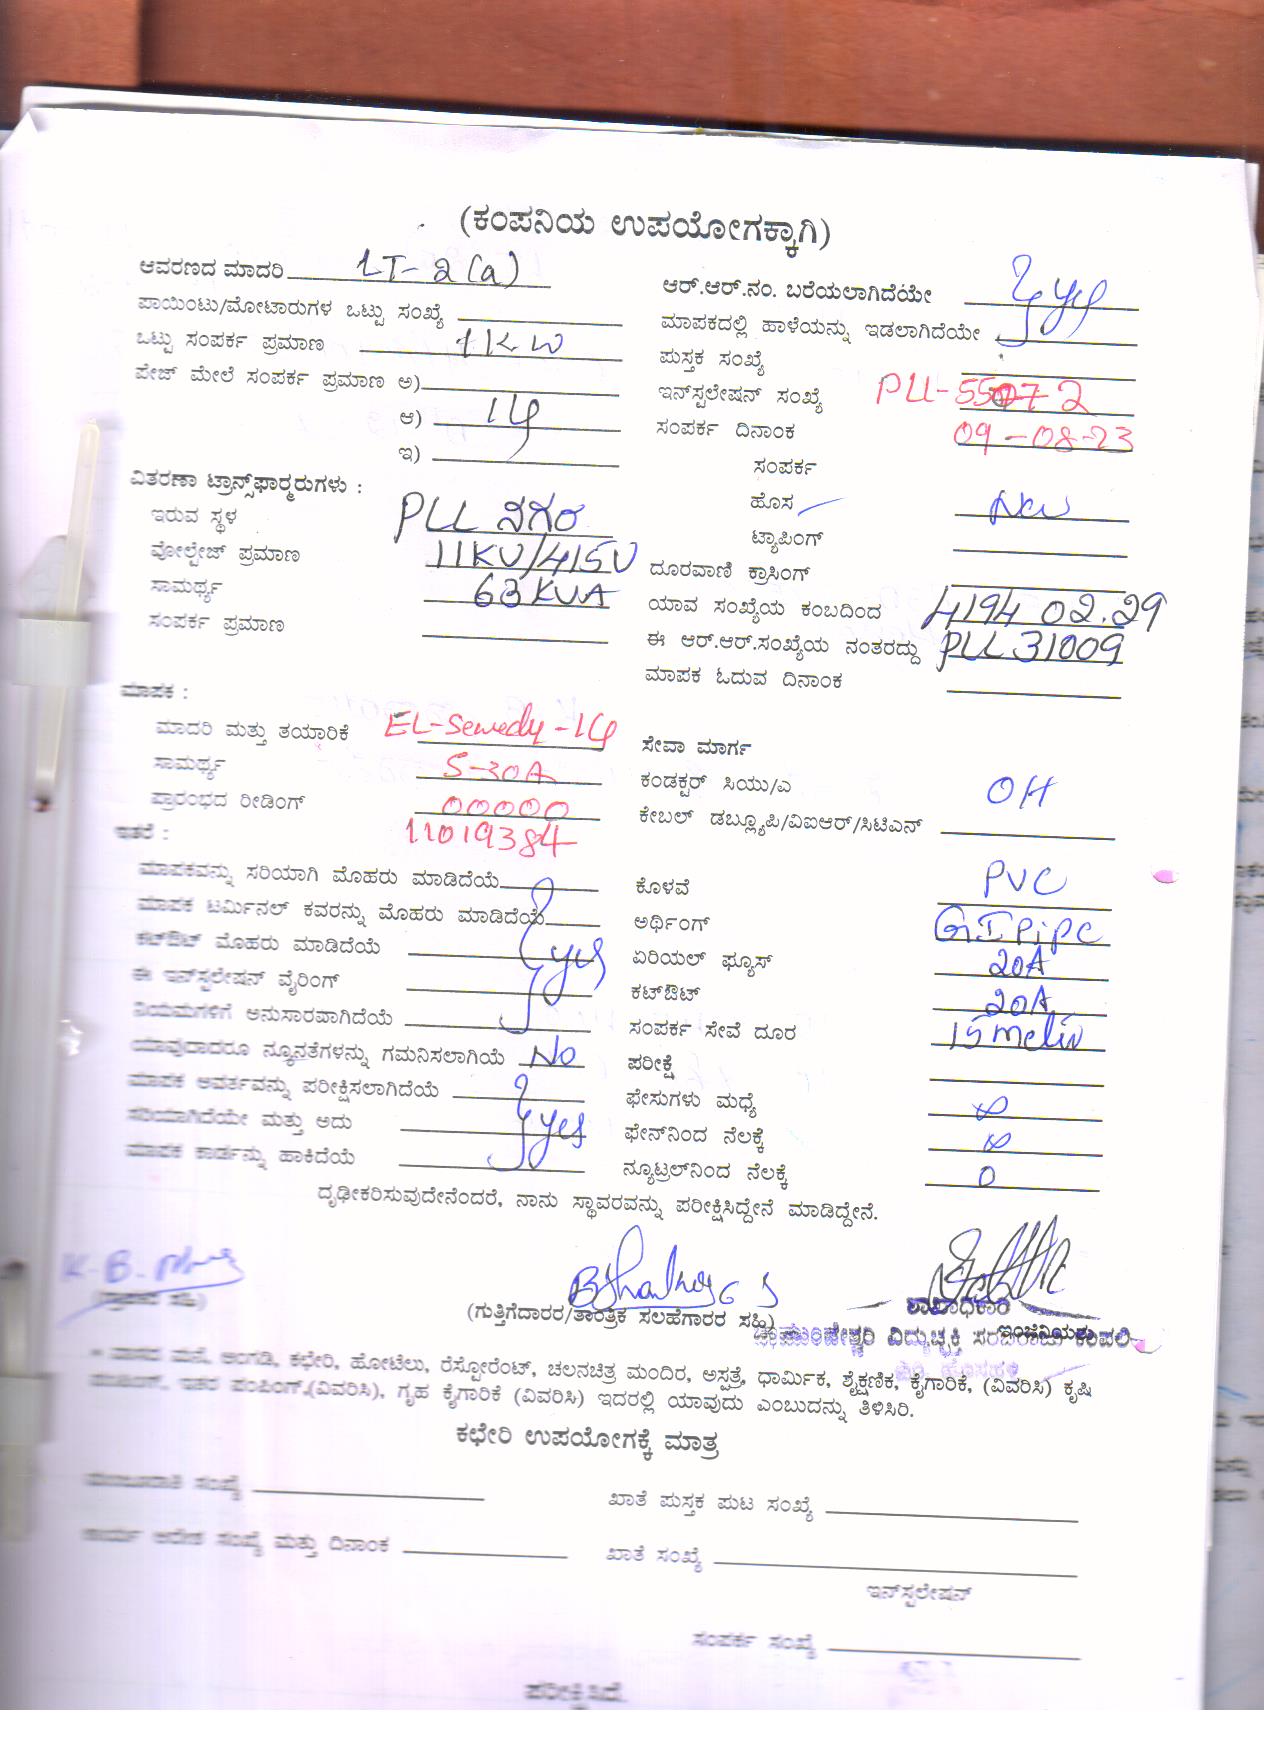 (ಕಂಪನಿಯ ಉಪಯೋಗಕ್ಕಾಗಿ)
ಆವರಣದ ಮಾದರಿ LT-2(a)
ಪಾಯಿಂಟು/ಮೋಟಾರುಗಳ ಒಟ್ಟು ಸಂಖ್ಯೆ
ಒಟ್ಟು ಸಂಪರ್ಕ ಪ್ರಮಾಣ 1KW
ಪೇಜ್ ಮೇಲೆ ಸಂಪರ್ಕ ಪ್ರಮಾಣ ಅ)
ಆ) 1φ
ಇ)
ವಿತರಣಾ ಟ್ರಾನ್ಸ್‌ಫಾರ್‍ಮರುಗಳು :
ಇರುವ ಸ್ಥಳ PLL ನಗರ
ವೋಲ್ಟೇಜ್ ಪ್ರಮಾಣ 11KV/415V
ಸಾಮರ್ಥ್ಯ 63KVA
ಸಂಪರ್ಕ ಪ್ರಮಾಣ
ಮಾಪಕ :
ಮಾದರಿ ಮತ್ತು ತಯಾರಿಕೆ EL-Sewedy-1φ
ಸಾಮರ್ಥ್ಯ 5-30A
ಪ್ರಾರಂಭದ ರೀಡಿಂಗ್ 00000
11019384
ಇತರೆ :
ಮಾಪಕವನ್ನು ಸರಿಯಾಗಿ ಮೊಹರು ಮಾಡಿದೆಯೆ
ಮಾಪಕ ಟರ್ಮಿನಲ್ ಕವರನ್ನು ಮೊಹರು ಮಾಡಿದೆಯೆ
ಕಟ್‌ಔಟ್ ಮೊಹರು ಮಾಡಿದೆಯೆ yes
ಈ ಇನ್‌ಸ್ಟಲೇಷನ್ ವೈರಿಂಗ್
ನಿಯಮಗಳಿಗೆ ಅನುಸಾರವಾಗಿದೆಯೆ
ಯಾವುದಾದರೂ ನ್ಯೂನತೆಗಳನ್ನು ಗಮನಿಸಲಾಗಿಯೆ No
ಮಾಪಕ ಆವರ್ತವನ್ನು ಪರೀಕ್ಷಿಸಲಾಗಿದೆಯೆ
ಸರಿಯಾಗಿದೆಯೇ ಮತ್ತು ಅದು yes
ಮಾಪಕ ಕಾರ್ಡನ್ನು ಹಾಕಿದೆಯೆ
ಆರ್.ಆರ್.ನಂ. ಬರೆಯಲಾಗಿದೆಯೇ yes
ಮಾಪಕದಲ್ಲಿ ಹಾಳೆಯನ್ನು ಇಡಲಾಗಿದೆಯೇ
ಪುಸ್ತಕ ಸಂಖ್ಯೆ
ಇನ್‌ಸ್ಟಲೇಷನ್ ಸಂಖ್ಯೆ PLL-55072
ಸಂಪರ್ಕ ದಿನಾಂಕ 09-08-23
ಸಂಪರ್ಕ
ಹೊಸ New
ಟ್ಯಾಪಿಂಗ್
ದೂರವಾಣಿ ಕ್ರಾಸಿಂಗ್
ಯಾವ ಸಂಖ್ಯೆಯ ಕಂಬದಿಂದ 4194 02.29
ಈ ಆರ್.ಆರ್.ಸಂಖ್ಯೆಯ ನಂತರದ್ದು PLL 31009
ಮಾಪಕ ಓದುವ ದಿನಾಂಕ
ಸೇವಾ ಮಾರ್ಗ
ಕಂಡಕ್ಟರ್ ಸಿಯು/ಎ OH
ಕೇಬಲ್ ಡಬ್ಲ್ಯೂಪಿ/ವಿಐಆರ್/ಸಿಟಿಎಸ್
ಕೊಳವೆ PVC
ಅರ್ಥಿಂಗ್ GI Pipe
ಏರಿಯಲ್ ಫ್ಯೂಸ್ 20A
ಕಟ್‌ಔಟ್ 20A
ಸಂಪರ್ಕ ಸೇವೆ ದೂರ 15 metir
ಪರೀಕ್ಷೆ
ಫೇಸುಗಳು ಮಧ್ಯೆ ∞
ಫೇಸ್‌ನಿಂದ ನೆಲಕ್ಕೆ ∞
ನ್ಯೂಟ್ರಲ್‌ನಿಂದ ನೆಲಕ್ಕೆ 0
ದೃಢೀಕರಿಸುವುದೇನೆಂದರೆ, ನಾನು ಸ್ಥಾವರವನ್ನು ಪರೀಕ್ಷಿಸಿದ್ದೇನೆ ಮಾಡಿದ್ದೇನೆ.
(ಗ್ರಾಹಕರ ಸಹಿ)
(ಗುತ್ತಿಗೆದಾರರ/ತಾಂತ್ರಿಕ ಸಲಹೆಗಾರರ ಸಹಿ)
ಶಾಖಾಧಿಕಾರಿ
ಇಂಜಿನಿಯರು
ಚಾಮುಂಡೇಶ್ವರಿ ವಿದ್ಯುಚ್ಛಕ್ತಿ ಸರಬರಾಜು ಕಂಪನಿ
ಮನೆ, ಅಂಗಡಿ, ಕಛೇರಿ, ಹೋಟೆಲು, ರೆಸ್ಟೋರೆಂಟ್, ಚಲನಚಿತ್ರ ಮಂದಿರ, ಅಸ್ಪತ್ರೆ, ಧಾರ್ಮಿಕ, ಶೈಕ್ಷಣಿಕ, ಕೈಗಾರಿಕೆ, (ವಿವರಿಸಿ) ಕೃಷಿ
ಇತರ ಪಂಪಿಂಗ್,(ವಿವರಿಸಿ), ಗೃಹ ಕೈಗಾರಿಕೆ (ವಿವರಿಸಿ) ಇದರಲ್ಲಿ ಯಾವುದು ಎಂಬುದನ್ನು ತಿಳಿಸಿರಿ.
ಕಛೇರಿ ಉಪಯೋಗಕ್ಕೆ ಮಾತ್ರ
ಮಂಜೂರಾತಿ ಸಂಖ್ಯೆ
ಖಾತೆ ಪುಸ್ತಕ ಪುಟ ಸಂಖ್ಯೆ
ಕಾರ್ಯ ಆದೇಶ ಸಂಖ್ಯೆ ಮತ್ತು ದಿನಾಂಕ
ಖಾತೆ ಸಂಖ್ಯೆ
ಇನ್‌ಸ್ಟಲೇಷನ್
ಸಂಪರ್ಕ ಸಂಖ್ಯೆ
ಪರೀಕ್ಷಿಸಿದೆ.